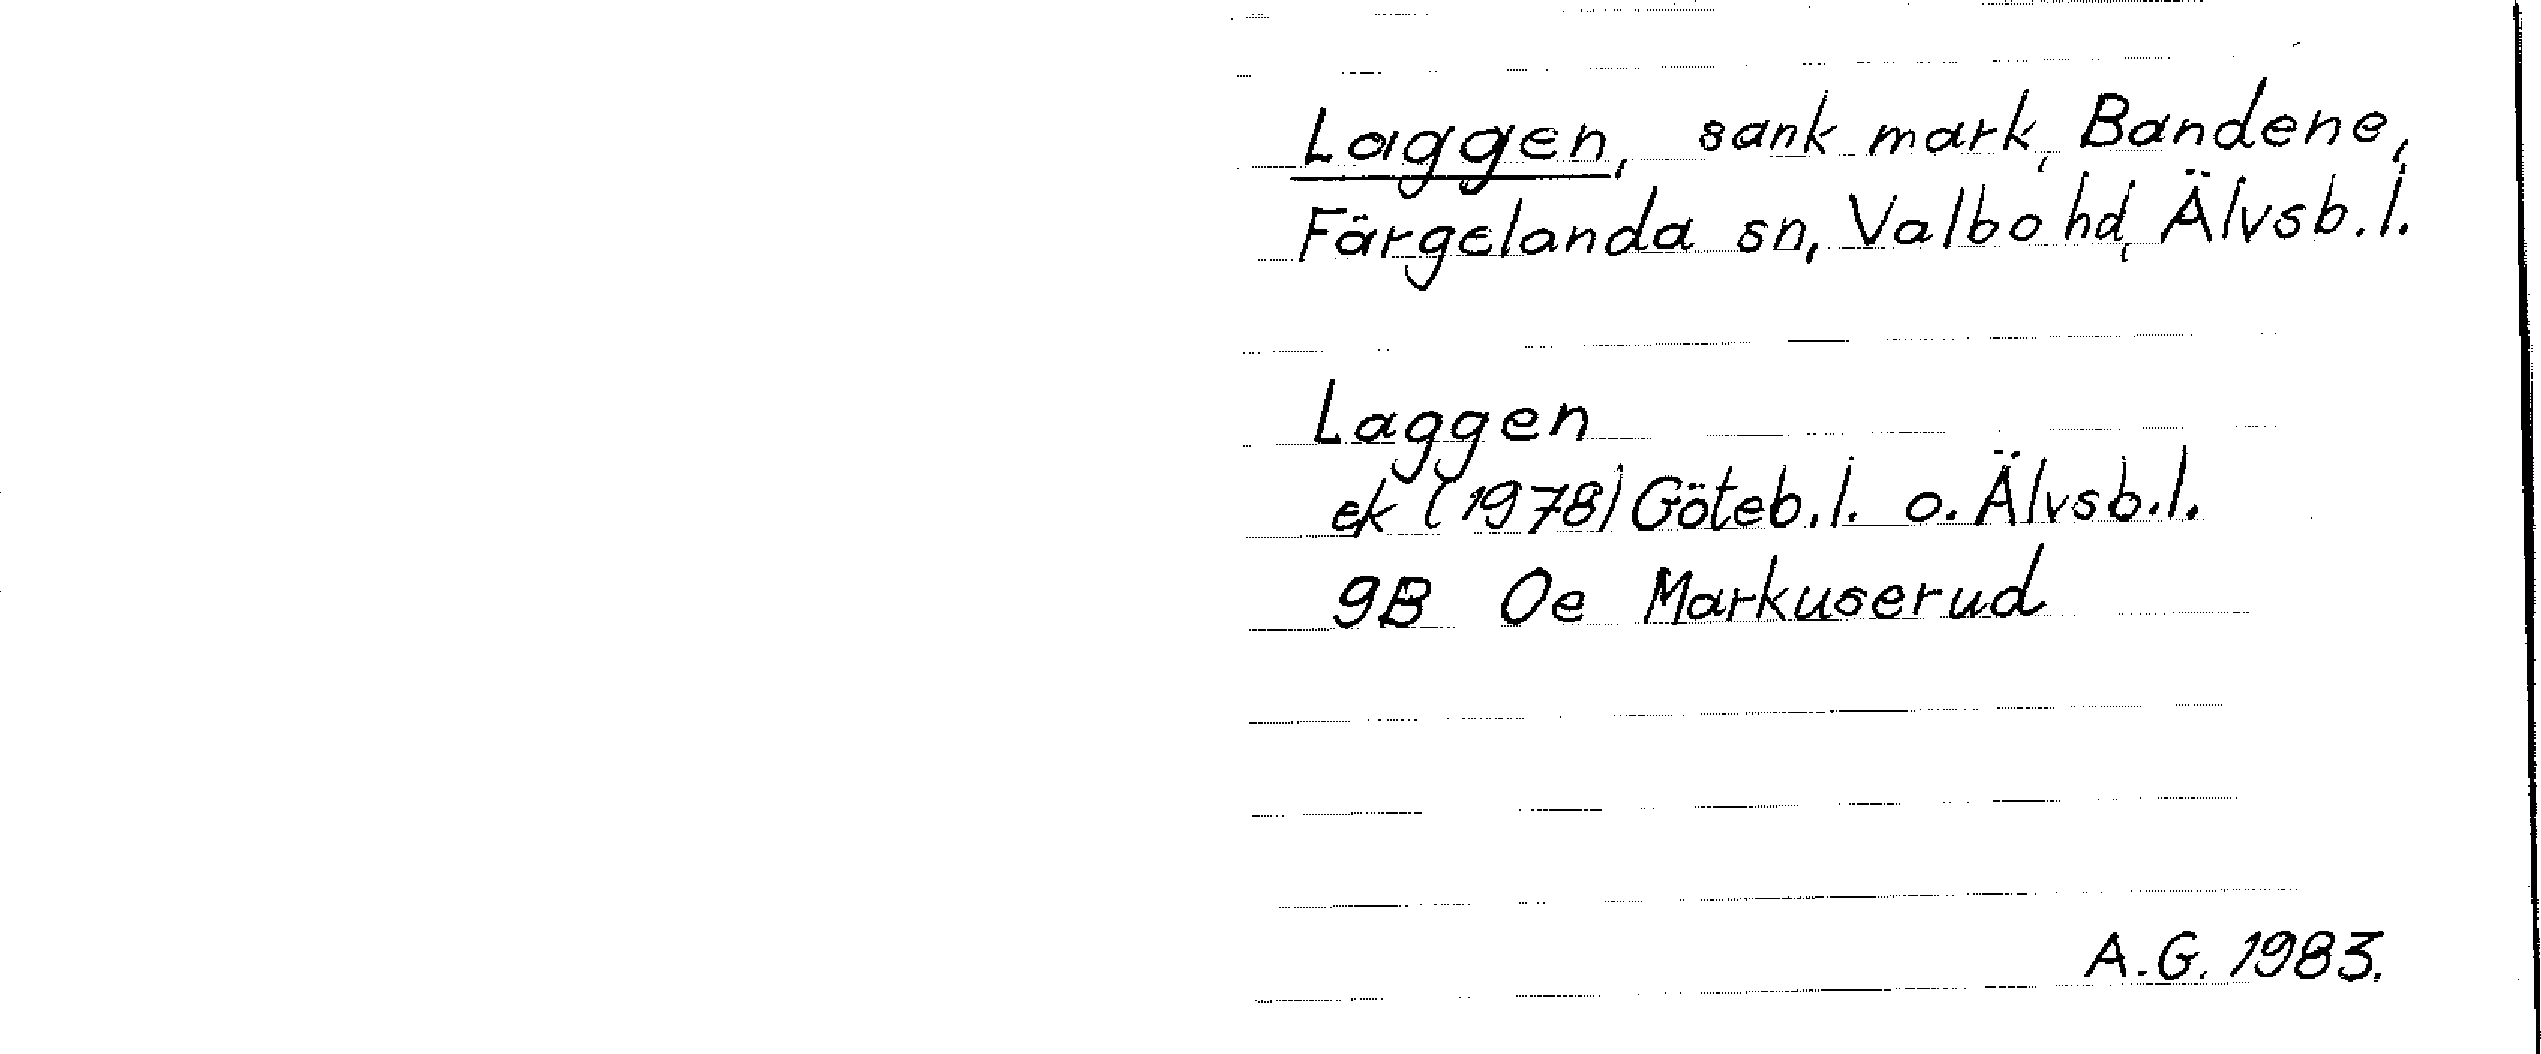 Laggen, sank mark, Bandene,
Färgelanda sn, Valbo hd, Älvsb.l.
Laggen
ek (1978) Göteb.l. o. Älvsb.l.
9B Oe Markuserud
A.G. 1983.